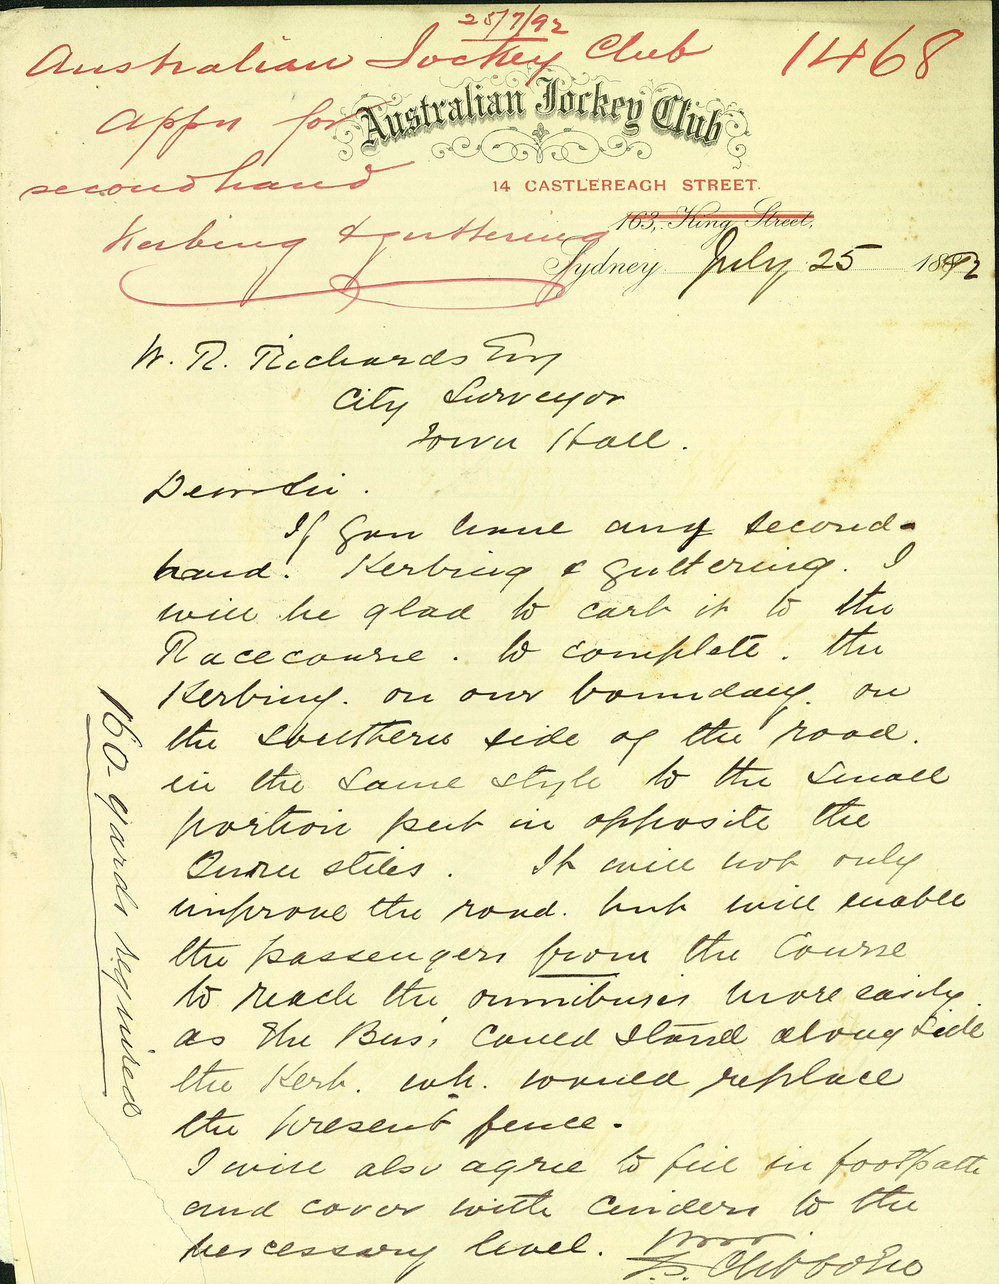 25/7/92
Australian Jockey Club 1468
Appn for
second hand
Kerbing & guttering
Australian Jockey Club
14 CASTLEREAGH STREET.
163, King Street,
Sydney July 25 1892
W. R. Richards Esq
City Surveyor
Town Hall.
Dear Sir.
If you have any second-
hand. Kerbing & guttering. I
will be glad to cart it to the
Racecourse. to complete. the
Kerbing. on our boundary. on
the Southern side of the road.
in the same style to the small
portion put in opposite the
stiles. It will not only
improve the road. but will enable
the passengers from the Course
to reach the omnibuses more easily.
as the Bus' could stand along side
the Kerb. wh. would replace
the present fence.
I will also agree to fill in footpath
and cover with cinders to the
necessary level.
160 yards required